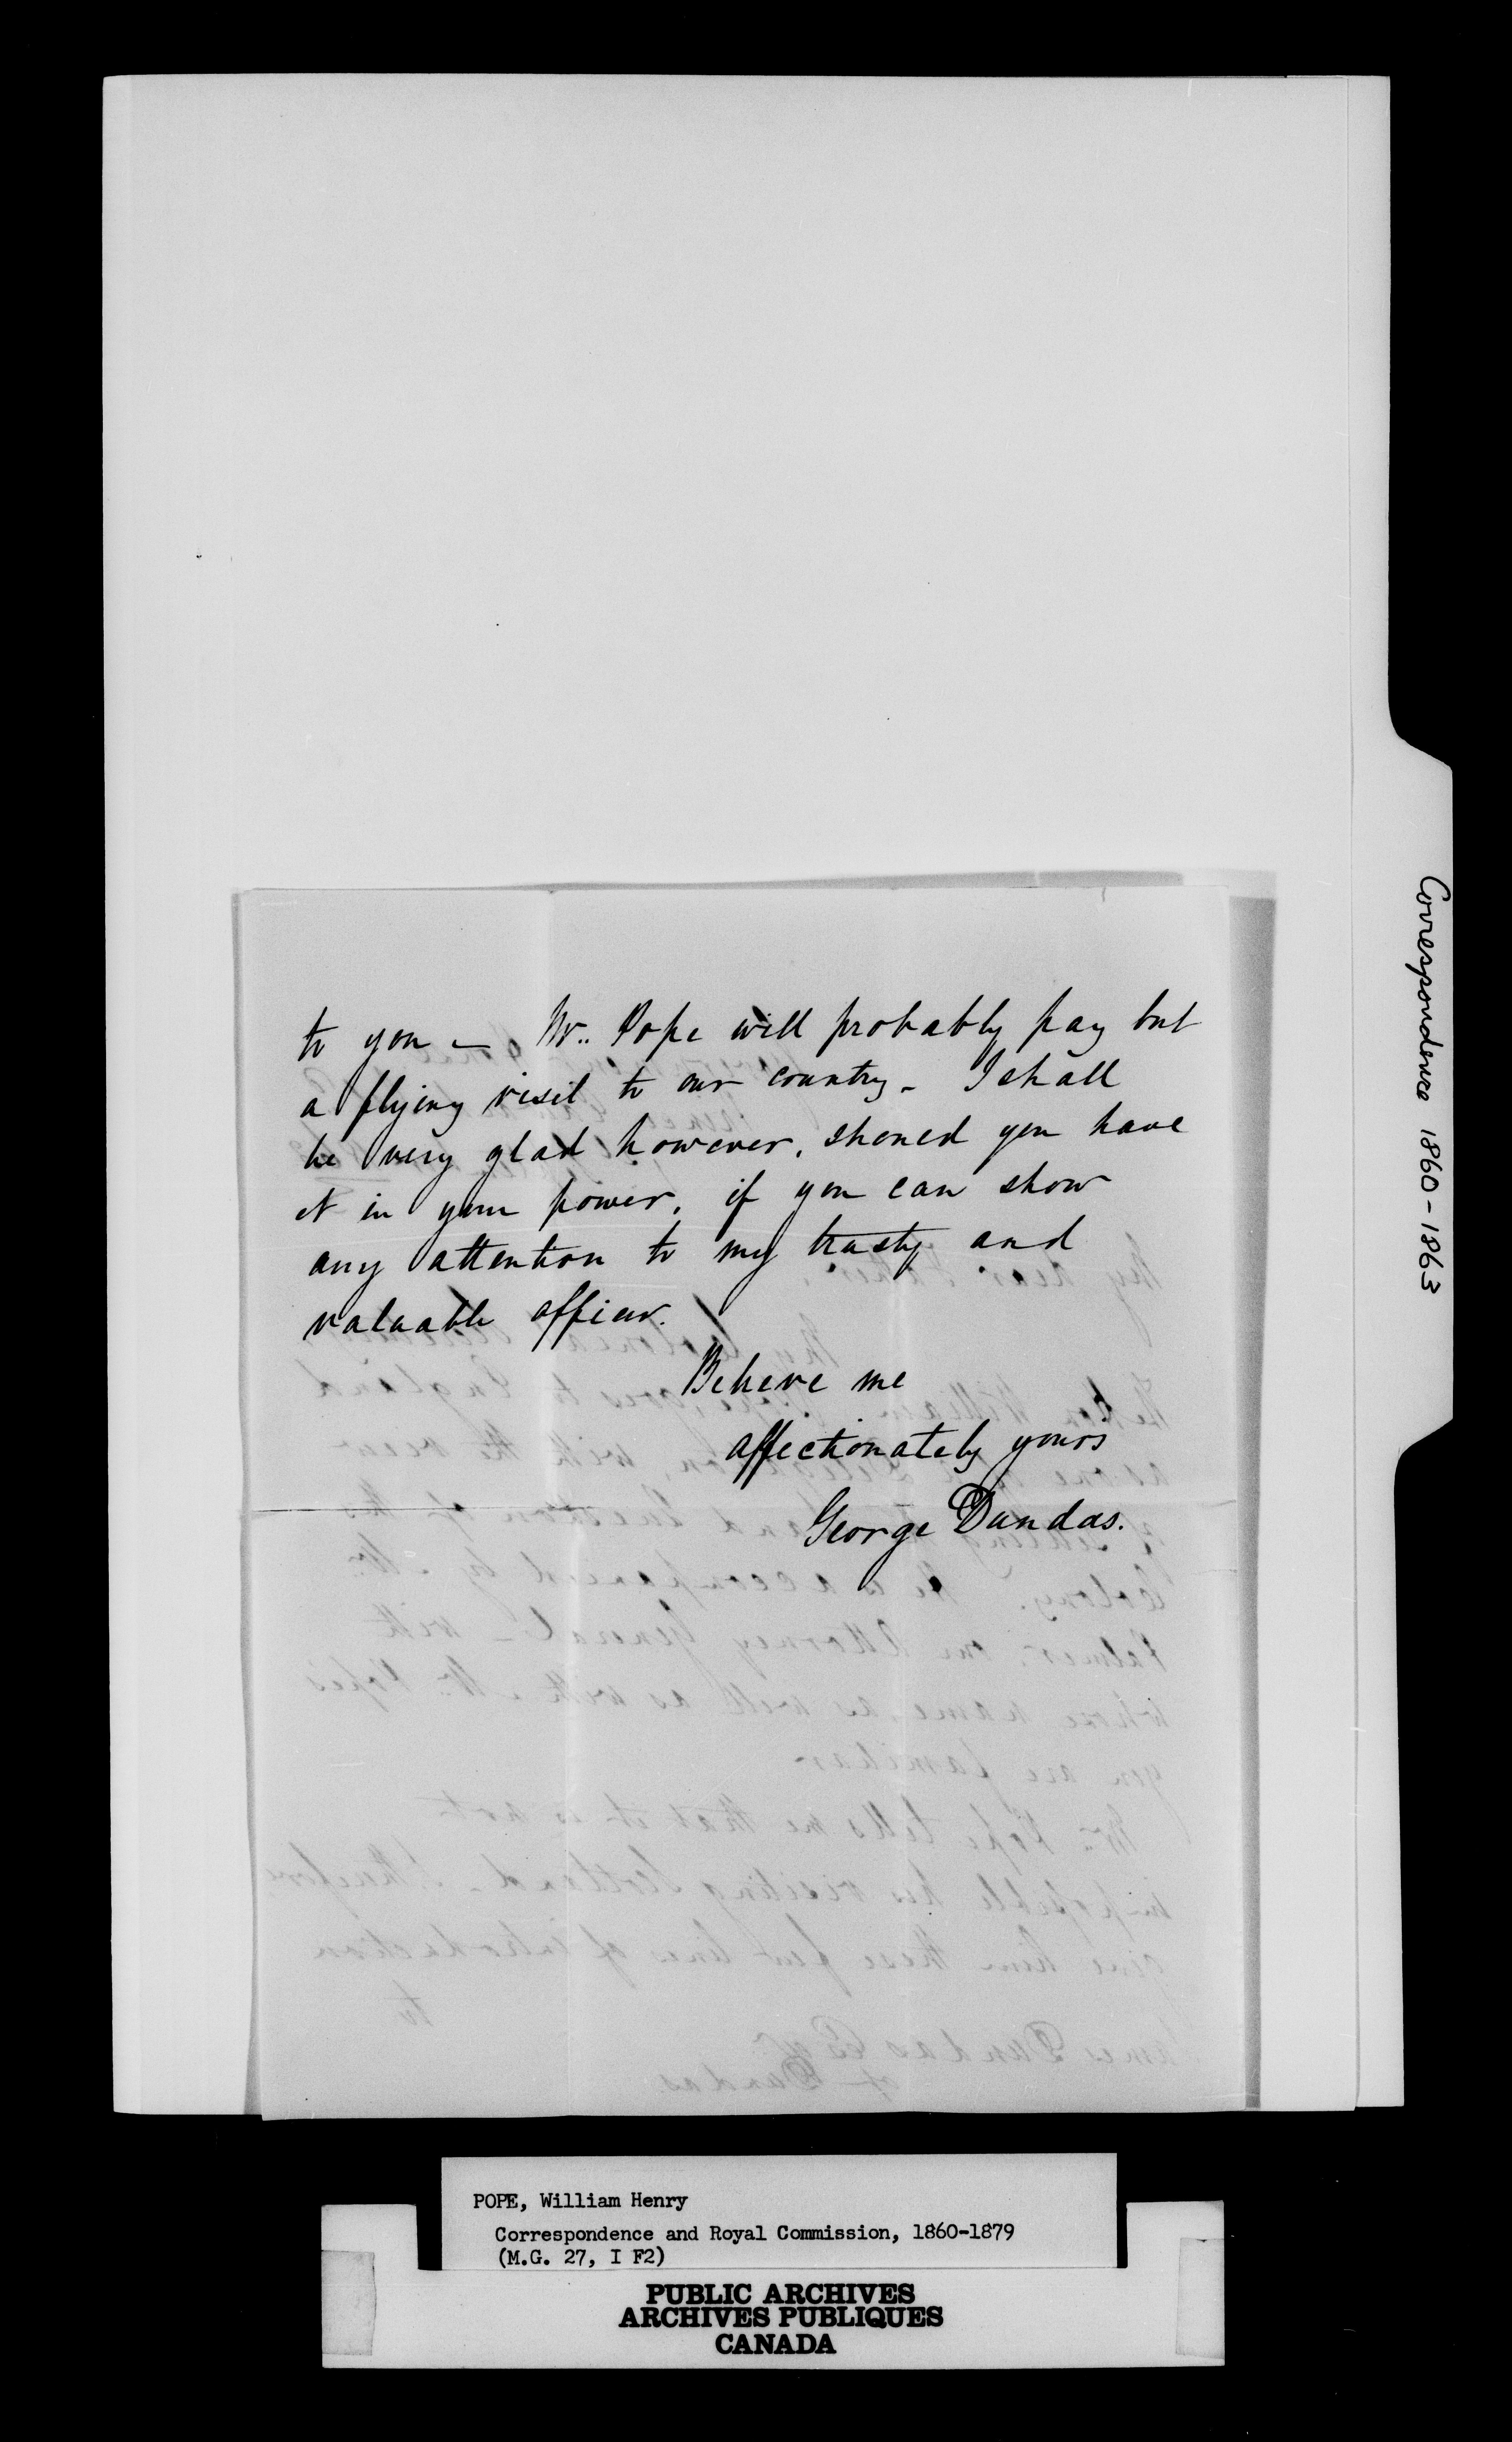 to you – Mr. Pope will probably pay but
a flying visit to our country. I shall
be very glad however, should you have
it in your power, if you can show
any attention to my trusty and
valuable officer.
Believe me
affectionately yours
George Dundas.
Correspondence 1860-1863
POPE, William Henry
Correspondence and Royal Commission, 1860-1879
(M.G. 27, I F2)
PUBLIC ARCHIVES
ARCHIVES PUBLIQUES
CANADA